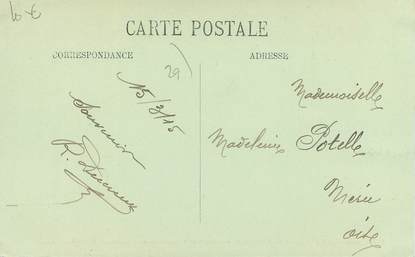 10 €
CARTE POSTALE
CORRESPONDANCE
ADRESSE
29)
15/3/15
Souvenir
R.
Mademoiselle
Madeleine Potelle
Méru
Oise